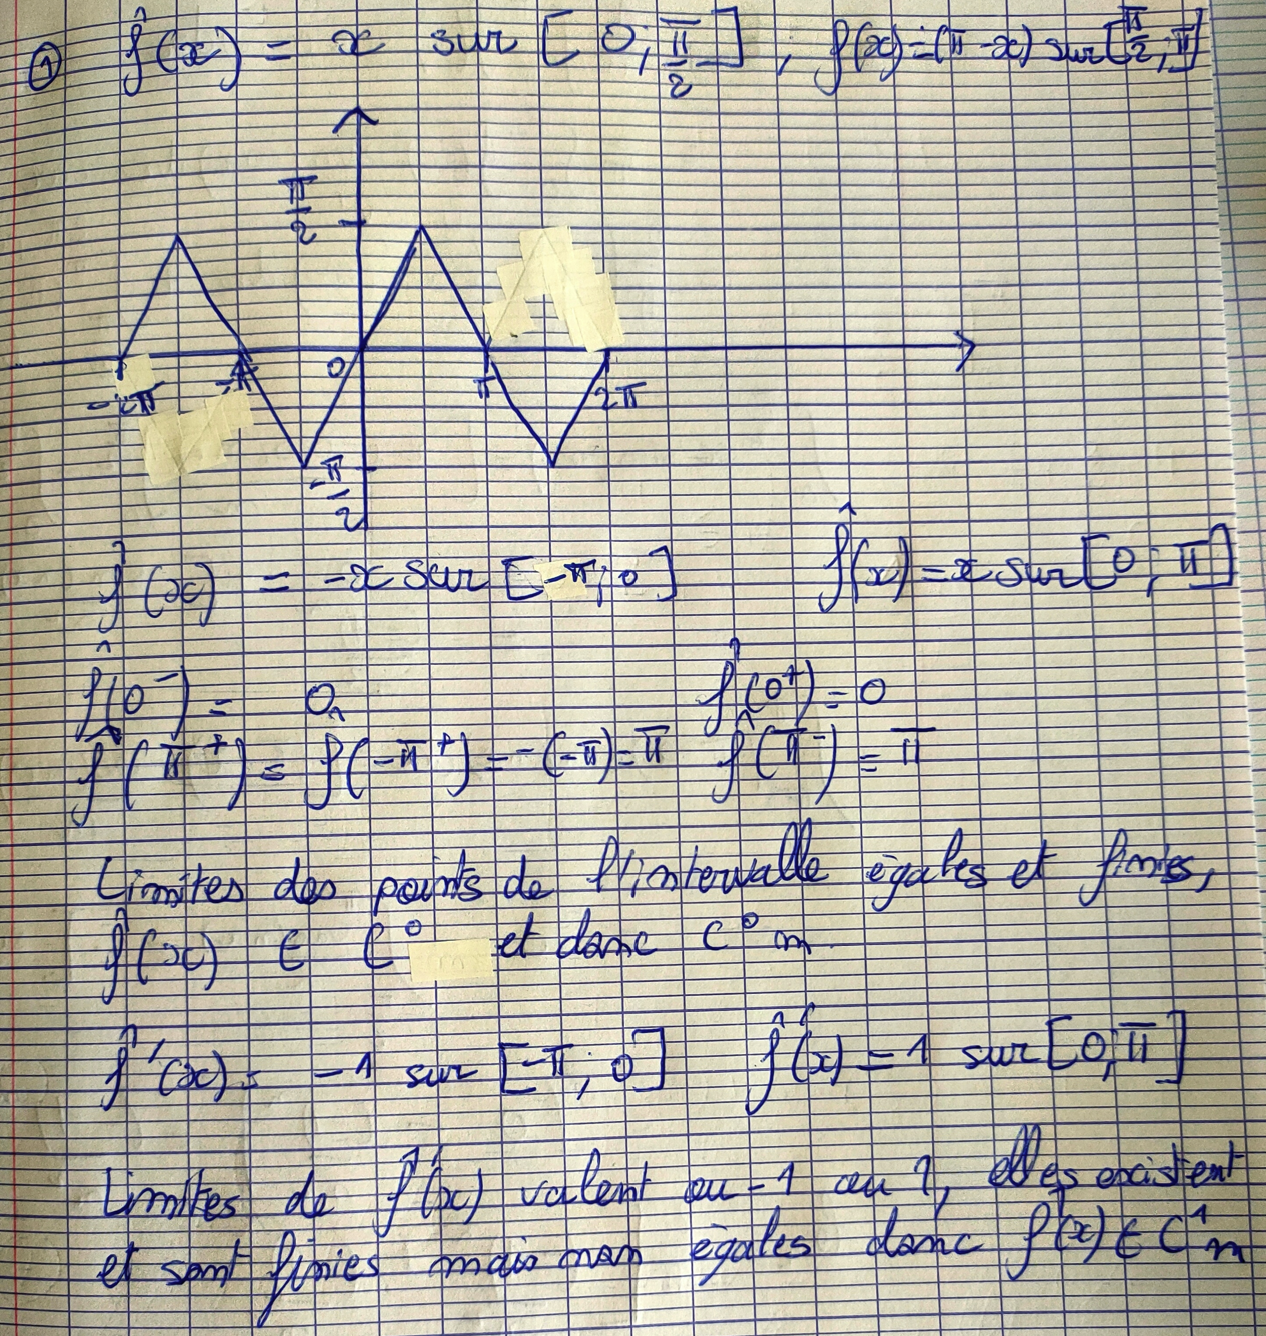 ① f̂(x) = x sur [0; π/2], f(x) = (π-x) sur [π/2; π]
π/2
-2π -π 0 π 2π
-π/2
f̂(x) = -x sur [-π; 0] f̂(x) = x sur [0; π]
f̂(0⁻) = 0 f̂(0⁺) = 0
f̂(π⁺) = f̂(-π⁺) = -(-π) = π f̂(π⁻) = π
Limites des points de l'intervalle égales et finies,
f̂(x) ∈ C⁰ et donc C⁰m
f̂'(x) = -1 sur [-π; 0] f̂'(x) = 1 sur [0; π]
Limites de f̂'(x) valent ou -1 ou 1, elles existent
et sont finies mais non égales donc f̂(x) ∈ C¹m